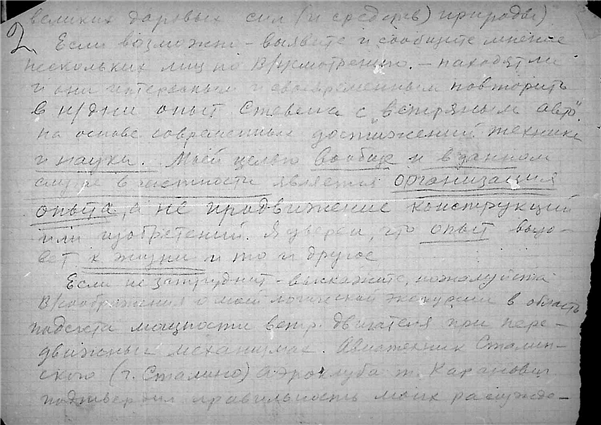 великих даровых сил (и средств) природы)
2.
Если возможно – выявите и сообщите мнение
нескольких лиц по В/усмотрению. – находят ли
и они интересным и своевременным повторить
в н/дни опыт Стевена с „ветряным авто".
на основе современных достижений техники
и науки. Моей целью вообще и в данном
случае в частности является организация
опыта, а не продвижение конструкций
или изобретений. Я уверен, что опыт вызо-
вет к жизни и то и другое
Если не затруднит – выскажите, пожалуйста
В/соображения о моей логической экскурсии в область
подсчета мощности ветр. двигателя при пере-
движных механизмах. Авиатехник Сталин-
ского (г. Сталино) Аэроклуба т. Каханович
подтвердил правильность моих рассужде-